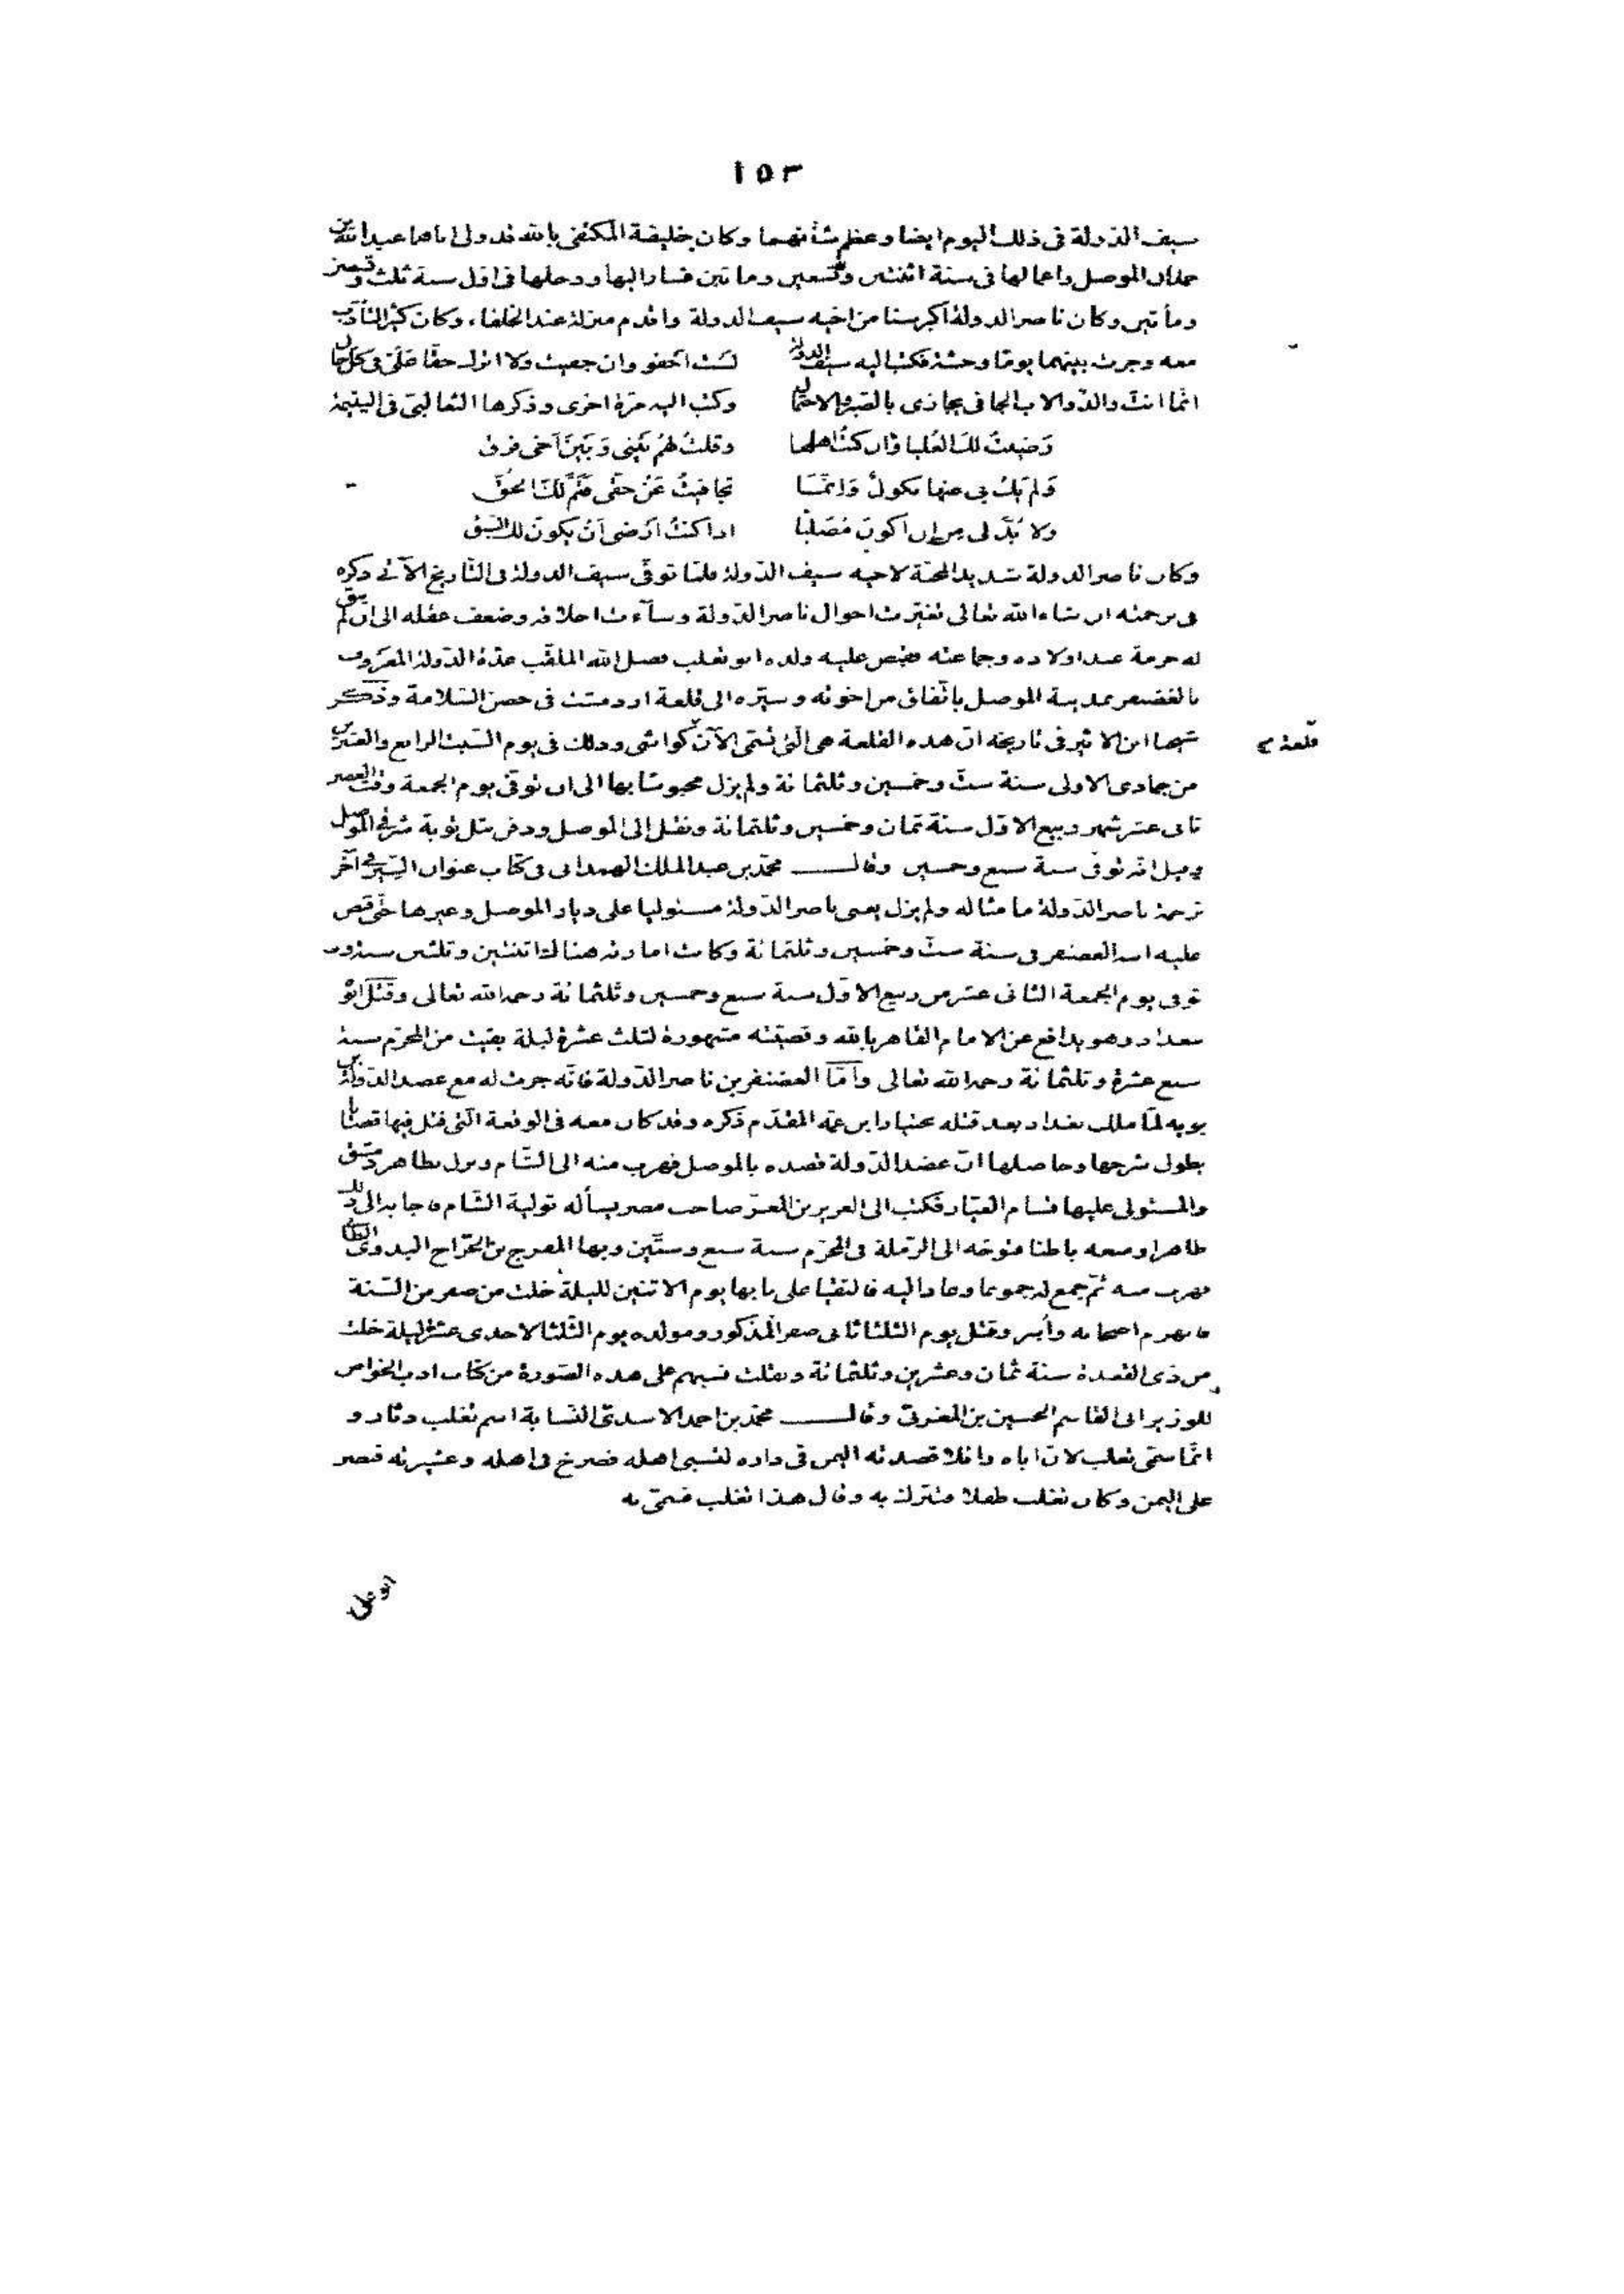 ١٥٣
سيف الدّولة فى ذلك اليوم ايضا وعظم شأنهما وكان خليفة المكتفى بالله قد ولى اباهما عبد الله بن
حمدان الموصل واعمالها فى سنة اثنتين وتسعين ومائتين فسار اليها ودخلها فى اوّل سنة ثلث وتسعين
ومأتين وكان ناصر الدولة اكبر سنا من اخيه سيف الدولة واقدم منزلة عند الخلفاء وكان كثير التأدّب
معه وجرت بينهما يومًا وحشة فكتب اليه سيف الدولة لست اجفو وان جفيت ولا اترك حقّا علىّ فى كلّ حال
انّما انت والدٌ والاب الجافى يجازى بالصّبر والاحتمال وكتب اليه مرّة اخرى وذكرها الثعالبىّ فى اليتيمة
رَضيتُ لكَ العُليا وان كنتُ اهلها وقلتُ لهُم بَينى وَبَينَ اَخى فرق
وَلم يَكُ بى عنها نكولٌ وَانّمَا تجافيتُ عَن حقّى فتَمَّ لكَ الحقّ
ولا بُدَّ لى من ان اكونَ مُصَليًا اذا كنتُ اَرْضى اَنْ يكونَ لك السّبق
وكان ناصر الدولة شديد المحبّة لاخيه سيف الدّولة فلمّا توفّى سيف الدولة فى التّاريخ الآتى ذكره
فى ترجمته ان شاء الله تعالى تغيّرت احوال ناصر الدّولة وساءت اخلاقه وضعف عقله الى ان لم يبق
له حرمة عند اولاده وجماعته فقبض عليه ولده ابو تغلب فضل الله الملقّب عدّة الدّولة المعروف
بالغضنفر بمدينة الموصل باتّفاق من اخوته وسيّره الى قلعة اردمشت فى حصن السّلامة وذكر
شيخنا ابن الاثير فى تاريخه انّ هذه القلعة هى الّتى تسمّى الآن كواشى وذلك فى يوم السّبت الرابع والعشرين
قلعة
من جمادى الاولى سنة ستّ وخمسين وثلثمائة ولم يزل محبوسًا بها الى ان توفّى يوم الجمعة وقت العصر
ثانى عشر شهر ربيع الاوّل سنة ثمان وخمسين وثلثمائة ونقل الى الموصل ودفن بتل توبة شرقى الموصل
وقيل انّه توفّى سنة سبع وخمسين وقال محمّد بن عبد الملك الهمدانى فى كتاب عنوان السّير فى آخر
ترجمة ناصر الدّولة ما مثاله ولم يزل يعنى ناصر الدّولة مستوليا على ديار الموصل وغيرها حتّى قبض
عليه ابنه الغضنفر فى سنة ستّ وخمسين وثلثمائة وكانت امارته هناك اثنتين وثلثين سنة و
توفى يوم الجمعة الثانى عشر من ربيع الاوّل سنة سبع وخمسين وثلثمائة رحمه الله تعالى وقتل ابوه
ببغداد وهو يدافع عن الامام القاهر بالله وقصّته مشهورة لثلث عشرة ليلة بقيت من المحرّم سنة
سبع عشرة وثلثمائة رحمه الله تعالى وامّا الغضنفر بن ناصر الدّولة فانّه جرت له مع عضد الدّولة بن
بويه لمّا ملك بغداد بعد قتله بختيار ابن عمّه المقدّم ذكره وقد كان معه فى الوقعة الّتى قتل فيها قضايا
يطول شرحها وحاصلها انّ عضد الدّولة قصده بالموصل فهرب منه الى الشّام ونزل بظاهر دمشق
والمستولى عليها قسام العيّار فكتب الى العزيز بن المعزّ صاحب مصر يسأله تولية الشّام فاجابه الى ذلك
ظاهرا ومنعه باطنا فتوجّه الى الرّملة فى المحرّم سنة سبع وستّين وبها المفرج بن الجرّاح البدوىّ الطائى
فهرب منه ثمّ جمع له جموعا وعاد اليه فالتقيا على بابها يوم الاثنين لليلة خلت من صفر من السّنة
فانهزم اصحابه وأسر وقتل يوم الثلثا ثانى صفر المذكور ومولده يوم الثّلثا لاحدى عشرة ليلة خلت
من ذى القعدة سنة ثمان وعشرين وثلثمائة ونقلت نسبهم على هذه الصّورة من كتاب ادب الخواص
للوزير ابى القاسم الحسين بن المغربىّ وقال محمّد بن احمد الاسدىّ النّسابة اسم تغلب دثار و
انّما سمّى تغلب لانّ اباه وائلا قصدته اليمن فى داره لتسبى اهله فصرخ فى اهله وعشيرته فنصر
على اليمن وكان تغلب طفلا فتبرك به وقال هذا تغلب فسمّى به
ابو على